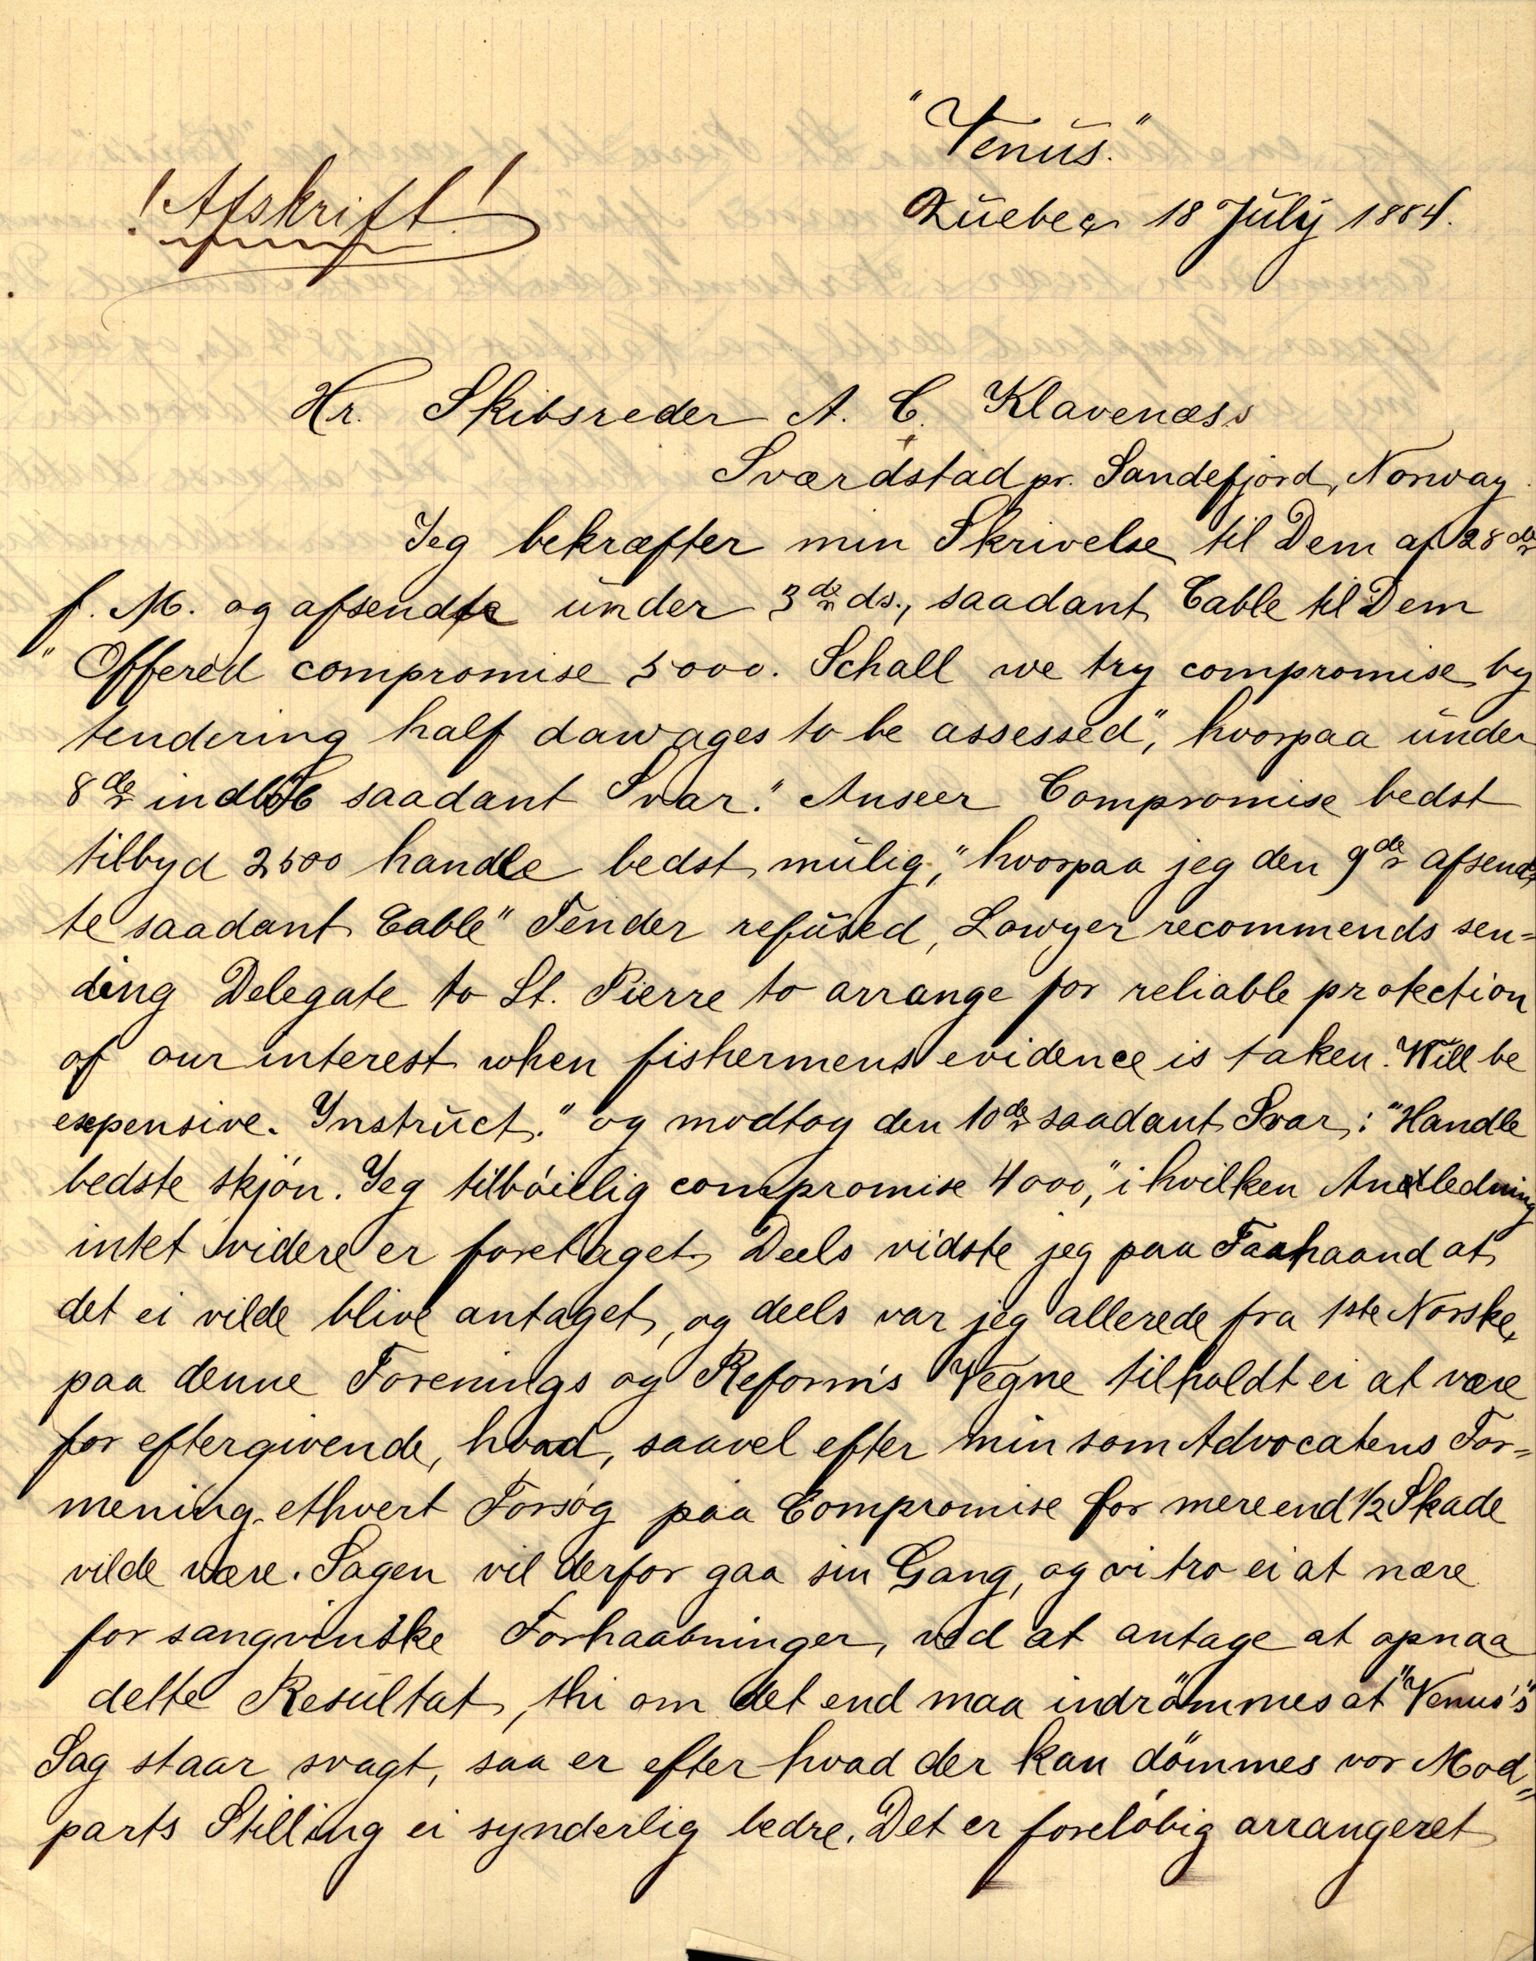 "Venus."
! Afskrift. !
Quebec 18 July 1884.
Hr. Skibsreder A. C. Klavenæss
Sværdstad pr. Sandefjord, Norway.
Jeg bekræfter min Skrivelse til Dem af 28de
f. M. og afsendte under 3de ds., saadant Cable til Dem
"Offered compromise 5000. Schall we try compromise by
tendering half dawages to be assessed", hvorpaa under
8de indløb saadant Svar: "Anseer Compromise bedst
tilbyd 2500 handle bedst mulig", hvorpaa jeg den 9de afsend=
te saadant Cable "Tender refused, Lawyer recommends sen=
ding Delegate to St. Pierre to arrange for reliable protection
of our interest when fishermens evidence is taken. Will be
expensive. Instruct." og modtog den 10de saadant Svar: "Handle
bedste skjön. Jeg tilböielig compromise 4000", i hvilken Anledning
intet videre er foretaget. Deels vidste jeg paa Forhaand at
det ei vilde blive antaget, og deels var jeg allerede fra 1ste Norske,
paa denne Forenings og Reform's Vegne tilholdt ei at være
for eftergivende, hvad, saavel efter min som Advocatens For=
mening ethvert Forsög paa Compromise for mere end 1/2 Skade
vilde være. Sagen vil derfor gaa sin Gang, og vi tro ei at nære
for sangvinske Forhaabninger, ved at antage at opnaa
dette Resultat, thi om det end maa indrömmes at "Venus's"
Sag staar svagt, saa er efter hvad der kan dömmes vor Mod=
parts Stilling ei synderlig bedre. Det er forelöbig arrangeret